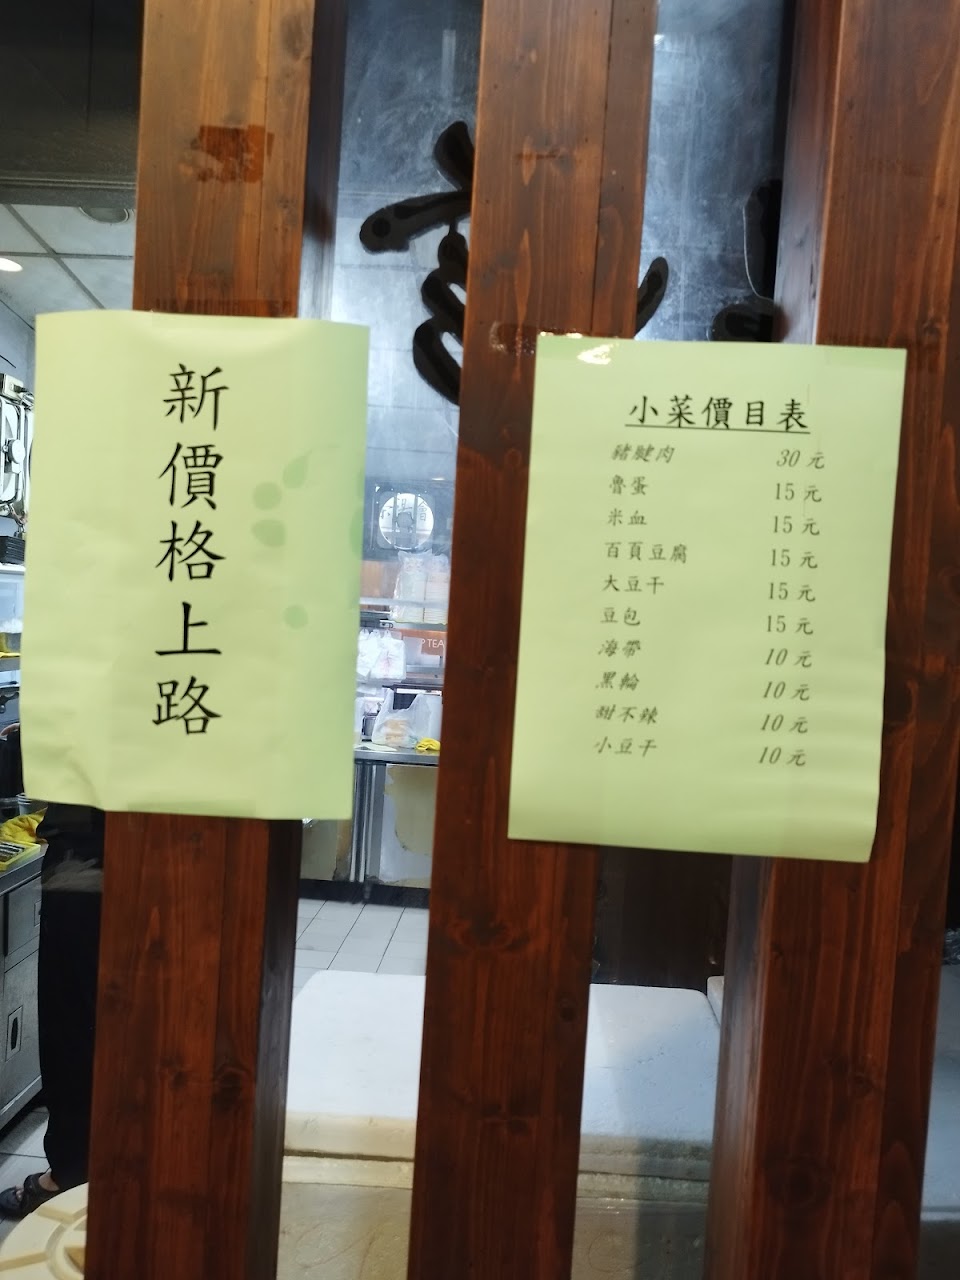 新價格上路
小菜價目表
豬腱肉 30元
魯蛋 15元
米血 15元
百頁豆腐 15元
大豆干 15元
豆包 15元
海帶 10元
黑輪 10元
甜不辣 10元
小豆干 10元
P TEA